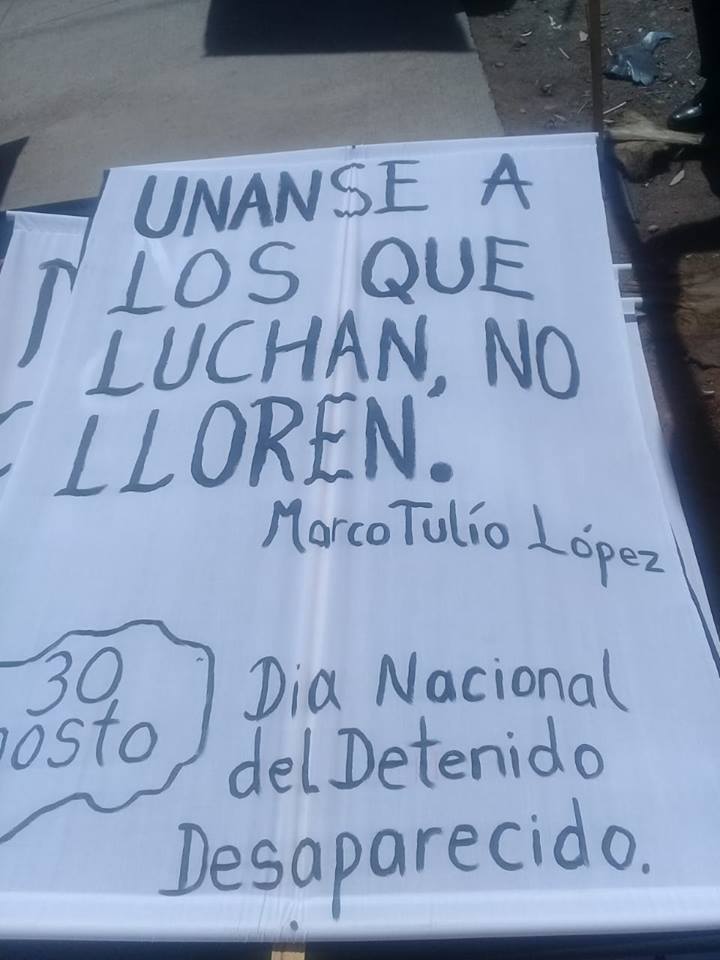 UNANSE A
LOS QUE
LUCHAN, NO
LLOREN.
Marco Tulío López
30
Dia Nacional
del Detenido
Desaparecido.